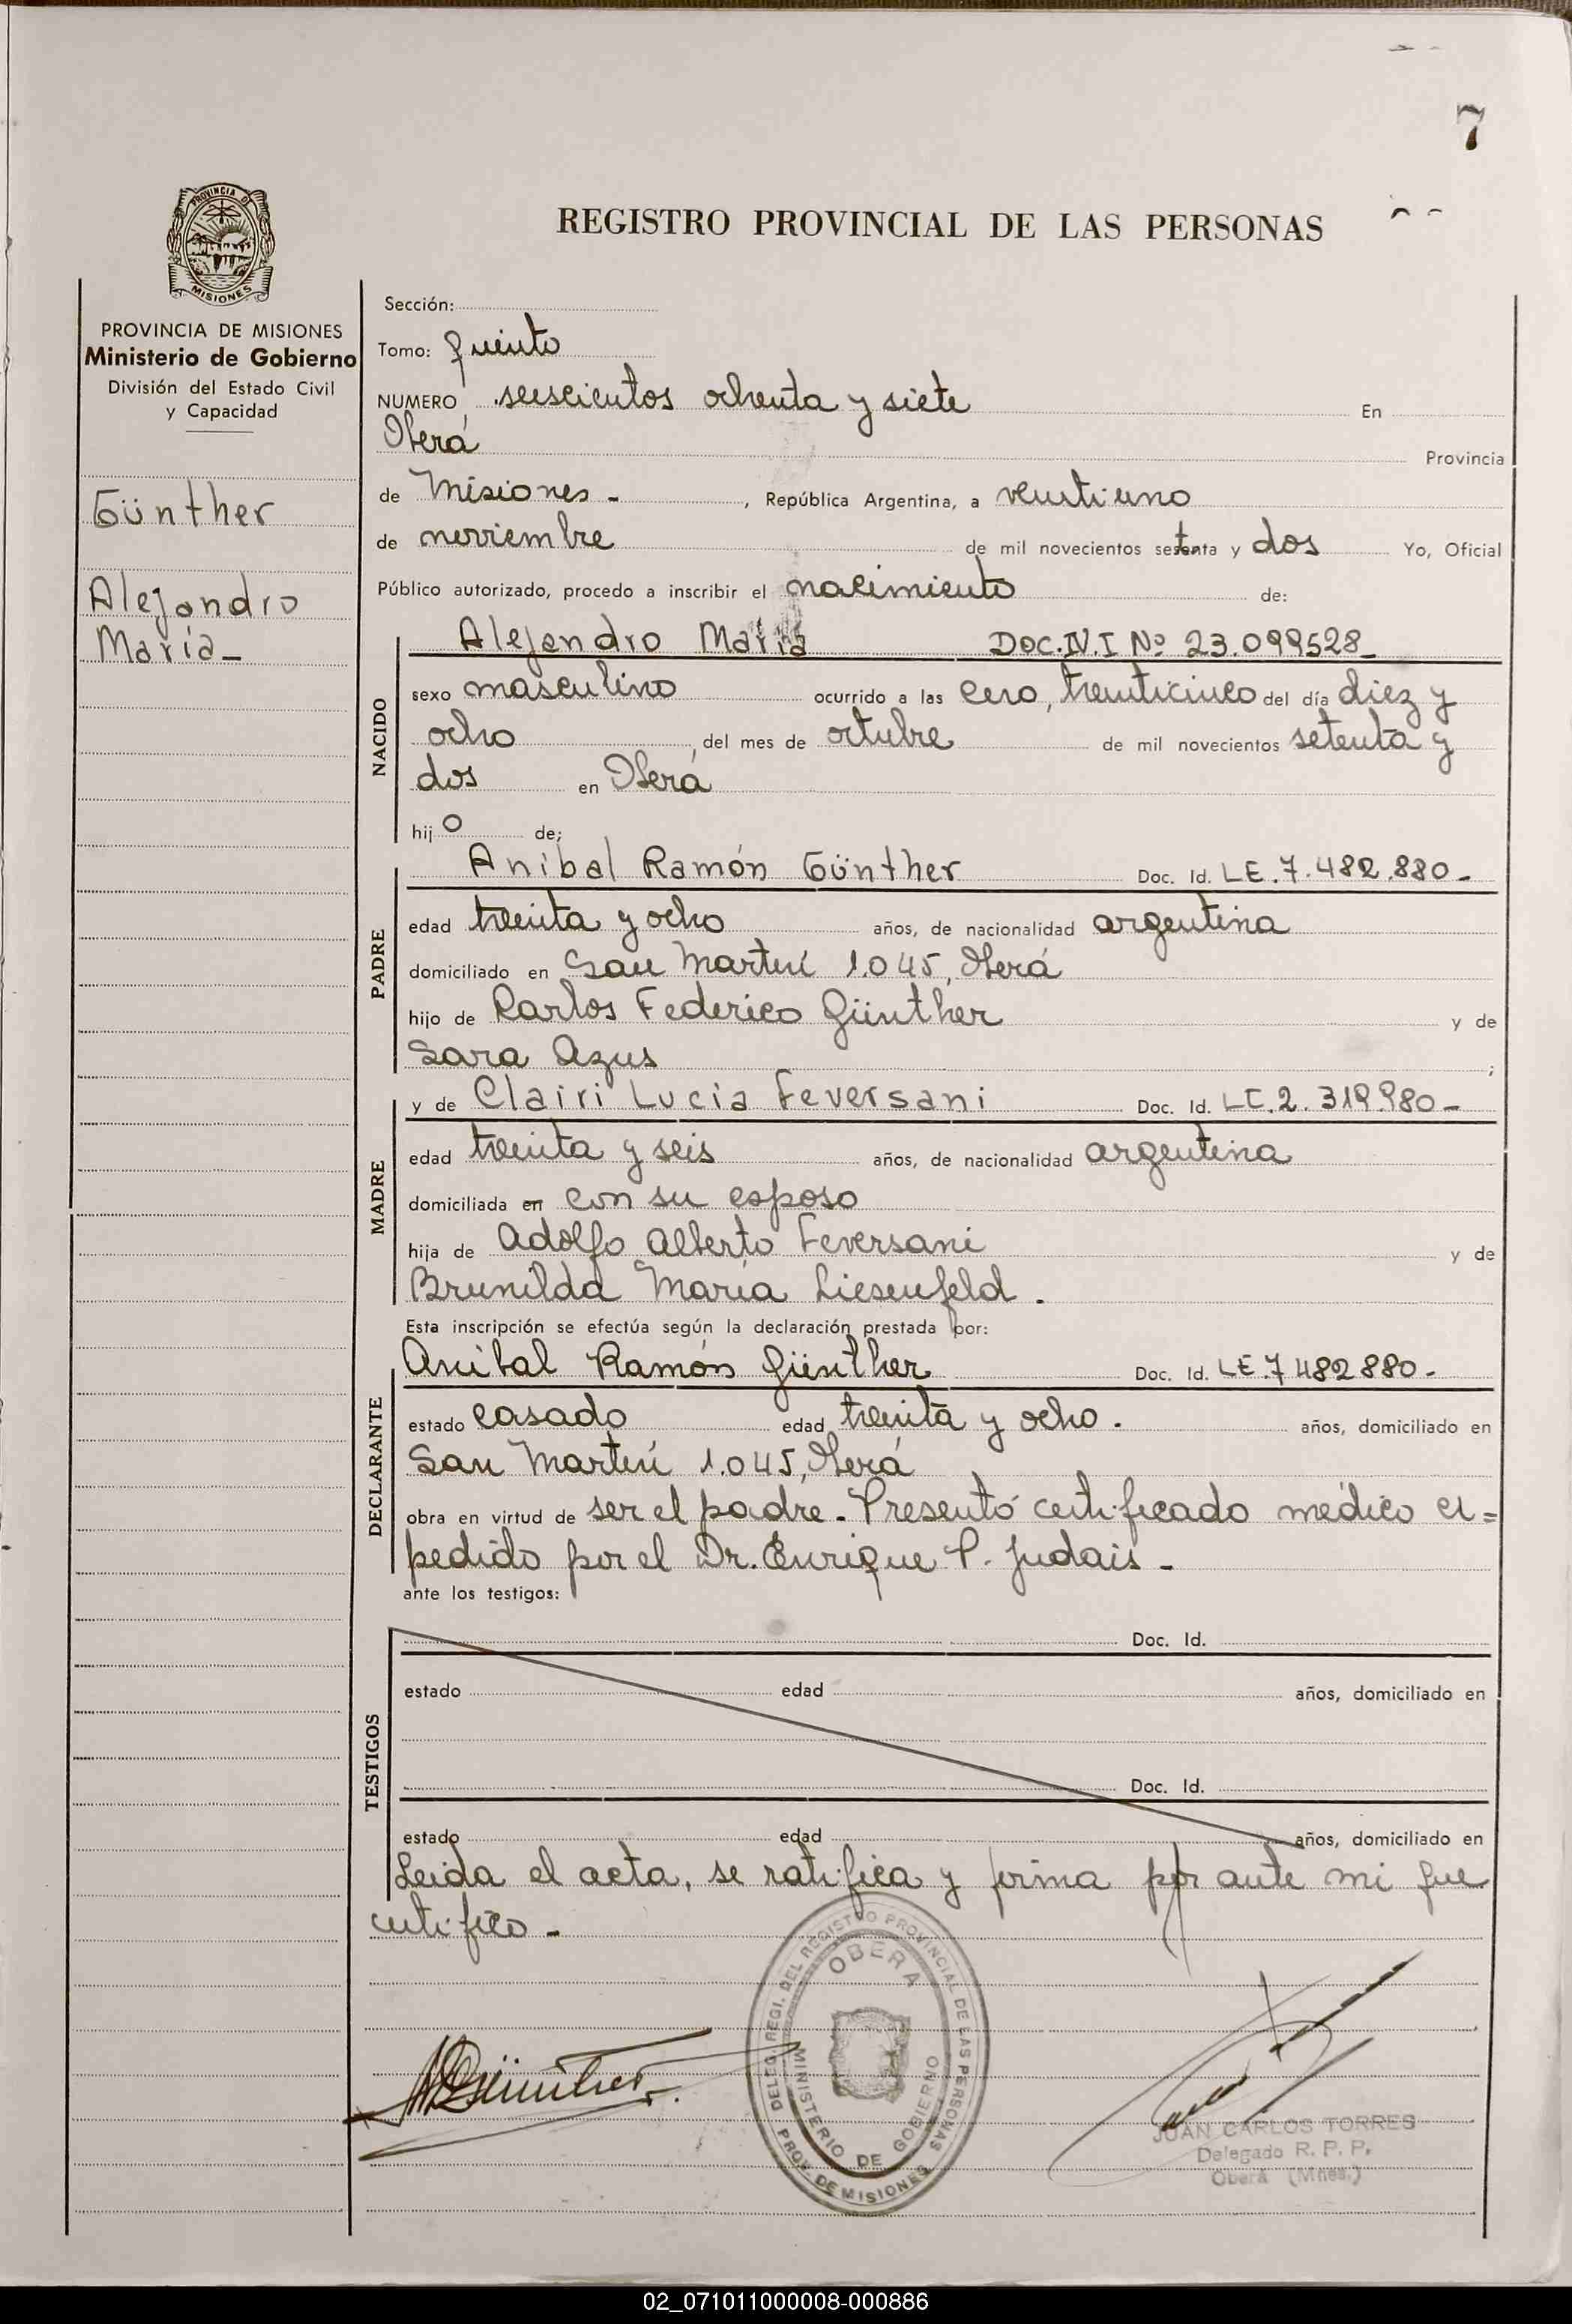 7
PROVINCIA D
MISIONES
REGISTRO PROVINCIAL DE LAS PERSONAS
PROVINCIA DE MISIONES
Ministerio de Gobierno
División del Estado Civil
y Capacidad
Günther
Alejandro
María_
Sección:
Tomo: quinto
NUMERO seiscientos ochenta y siete En
Oberá Provincia
de Misiones - , República Argentina, a veintiuno
de noviembre de mil novecientos setenta y dos Yo, Oficial
Público autorizado, procedo a inscribir el nacimiento de:
NACIDO
Alejandro María DOC.N.I Nº 23.099528_
sexo masculino ocurrido a las cero, treinticinco del día diez y
ocho , del mes de octubre de mil novecientos setenta y
dos en Oberá
hijo de;
PADRE
Aníbal Ramón Günther Doc. Id. LE.7.482.880-
edad treinta y ocho años, de nacionalidad argentina
domiciliado en San Martín 1.045, Oberá
hijo de Carlos Federico Günther y de
Sara Azus ;
MADRE
y de Clairi Lucía Feversani Doc. Id. LC.2.319.980-
edad treinta y seis años, de nacionalidad argentina
domiciliada en con su esposo
hija de Adolfo Alberto Feversani y de
Brunilda María Liesenfeld .
Esta inscripción se efectúa según la declaración prestada por:
DECLARANTE
Aníbal Ramón Günther Doc. Id. LE.7482880-
estado casado edad treinta y ocho . años, domiciliado en
San Martín 1.045, Oberá
obra en virtud de ser el padre - Presentó certificado médico ex=
pedido por el Dr. Enrique P. Judais -
ante los testigos:
TESTIGOS
Doc. Id.
estado edad años, domiciliado en
Doc. Id.
estado edad años, domiciliado en
Leida el acta, se ratifica y firma por ante mi que
certifico -
DELEG. REGI. DEL REGISTRO PROVINCIAL DE LAS PERSONAS
OBERA
MINISTERIO DE GOBIERNO
PROV. DE MISIONES
Günther
JUAN CARLOS TORRES
Delegado R. P. P.
Oberá (Mnes.)
02_071011000008-000886